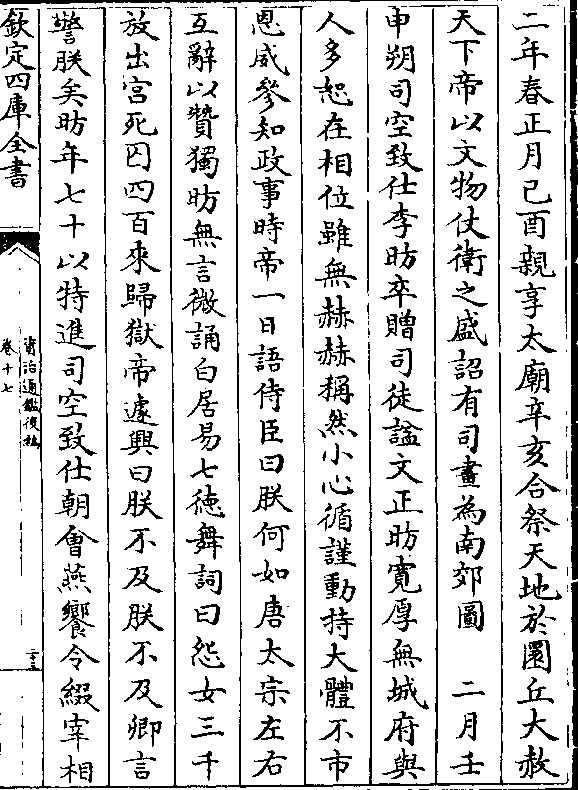 二年春正月己酉親享太廟辛亥合祭天地於圜丘大赦
天下帝以文物仗衛之盛詔有司畫為南郊圖　二月壬
申朔司空致仕李昉卒贈司徒諡文正昉寛厚無城府與
人多恕在相位雖無赫赫稱然小心循謹動持大體不市
恩威參知政事時帝一日語侍臣曰朕何如唐太宗左右
互辭以贊獨昉無言微誦白居易七徳舞詞曰怨女三千
放出宫死囚四百來歸獄帝遽興曰朕不及朕不及卿言
警朕矣昉年七十以特進司空致仕朝會燕饗令綴宰相
欽定四庫全書
資治通鑑後編
卷十七
二十三